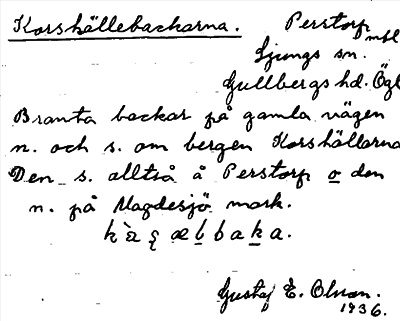 Korshällebackarna. Perstorp mfl
Ljungs sn.
Gullbergs hd. Ögl
Branta backar på gamla vägen
n. och s. om bergen Korshällarna
Den s. alltså å Perstorp o den
n. på Magdesjö mark.
Gustaf E. Olsson.
1936.